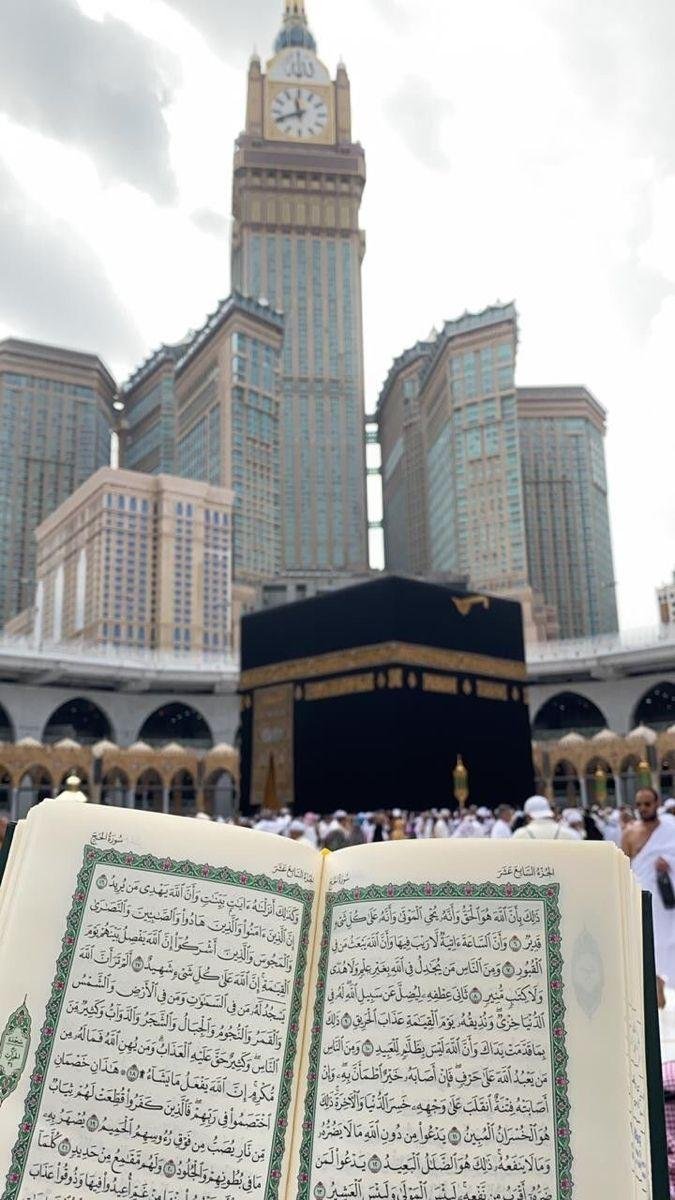 الله
الجُزْءُ السَّابِعَ عَشَرَ
ذَٰلِكَ بِأَنَّ ٱللَّهَ هُوَ ٱلْحَقُّ وَأَنَّهُۥ يُحْيِ ٱلْمَوْتَىٰ وَأَنَّهُۥ عَلَىٰ كُلِّ شَىْءٍ
قَدِيرٌ ٦ وَأَنَّ ٱلسَّاعَةَ ءَاتِيَةٌ لَّا رَيْبَ فِيهَا وَأَنَّ ٱللَّهَ يَبْعَثُ مَن فِى
ٱلْقُبُورِ ٧ وَمِنَ ٱلنَّاسِ مَن يُجَٰدِلُ فِى ٱللَّهِ بِغَيْرِ عِلْمٍ وَلَا هُدًى
وَلَا كِتَٰبٍ مُّنِيرٍ ٨ ثَانِىَ عِطْفِهِۦ لِيُضِلَّ عَن سَبِيلِ ٱللَّهِ لَهُۥ فِى
ٱلدُّنْيَا خِزْىٌ وَنُذِيقُهُۥ يَوْمَ ٱلْقِيَٰمَةِ عَذَابَ ٱلْحَرِيقِ ٩ ذَٰلِكَ
بِمَا قَدَّمَتْ يَدَاكَ وَأَنَّ ٱللَّهَ لَيْسَ بِظَلَّٰمٍ لِّلْعَبِيدِ ١٠ وَمِنَ ٱلنَّاسِ
مَن يَعْبُدُ ٱللَّهَ عَلَىٰ حَرْفٍ فَإِنْ أَصَابَهُۥ خَيْرٌ ٱطْمَأَنَّ بِهِۦ وَإِنْ
أَصَابَتْهُ فِتْنَةٌ ٱنقَلَبَ عَلَىٰ وَجْهِهِۦ خَسِرَ ٱلدُّنْيَا وَٱلْءَاخِرَةَ ذَٰلِكَ
هُوَ ٱلْخُسْرَانُ ٱلْمُبِينُ ١١ يَدْعُوا۟ مِن دُونِ ٱللَّهِ مَا لَا يَضُرُّهُۥ
وَمَا لَا يَنفَعُهُۥ ذَٰلِكَ هُوَ ٱلضَّلَٰلُ ٱلْبَعِيدُ ١٢ يَدْعُوا۟ لَمَن
ضَرُّهُۥٓ أَقْرَبُ مِن نَّفْعِهِۦ لَبِئْسَ ٱلْمَوْلَىٰ وَلَبِئْسَ ٱلْعَشِيرُ ١٣
الجُزْءُ السَّابِعَ عَشَرَ
سُورَةُ الحَجِّ
وَكَذَٰلِكَ أَنزَلْنَٰهُ ءَايَٰتٍۭ بَيِّنَٰتٍ وَأَنَّ ٱللَّهَ يَهْدِى مَن يُرِيدُ ١٦
إِنَّ ٱلَّذِينَ ءَامَنُوا۟ وَٱلَّذِينَ هَادُوا۟ وَٱلصَّٰبِـِٔينَ وَٱلنَّصَٰرَىٰ
وَٱلْمَجُوسَ وَٱلَّذِينَ أَشْرَكُوٓا۟ إِنَّ ٱللَّهَ يَفْصِلُ بَيْنَهُمْ يَوْمَ
ٱلْقِيَٰمَةِ إِنَّ ٱللَّهَ عَلَىٰ كُلِّ شَىْءٍ شَهِيدٌ ١٧ أَلَمْ تَرَ أَنَّ ٱللَّهَ
يَسْجُدُ لَهُۥ مَن فِى ٱلسَّمَٰوَٰتِ وَمَن فِى ٱلْأَرْضِ وَٱلشَّمْسُ
وَٱلْقَمَرُ وَٱلنُّجُومُ وَٱلْجِبَالُ وَٱلشَّجَرُ وَٱلدَّوَآبُّ وَكَثِيرٌ مِّنَ
ٱلنَّاسِ وَكَثِيرٌ حَقَّ عَلَيْهِ ٱلْعَذَابُ وَمَن يُهِنِ ٱللَّهُ فَمَا لَهُۥ مِن
مُّكْرِمٍ إِنَّ ٱللَّهَ يَفْعَلُ مَا يَشَآءُ ۩ ١٨ هَٰذَانِ خَصْمَانِ
ٱخْتَصَمُوا۟ فِى رَبِّهِمْ فَٱلَّذِينَ كَفَرُوا۟ قُطِّعَتْ لَهُمْ ثِيَابٌ
مِّن نَّارٍ يُصَبُّ مِن فَوْقِ رُءُوسِهِمُ ٱلْحَمِيمُ ١٩ يُصْهَرُ بِهِۦ
مَا فِى بُطُونِهِمْ وَٱلْجُلُودُ ٢٠ وَلَهُم مَّقَٰمِعُ مِنْ حَدِيدٍ ٢١ كُلَّمَآ
أُعِيدُوا۟ فِيهَا وَذُوقُوا۟ عَذَابَ